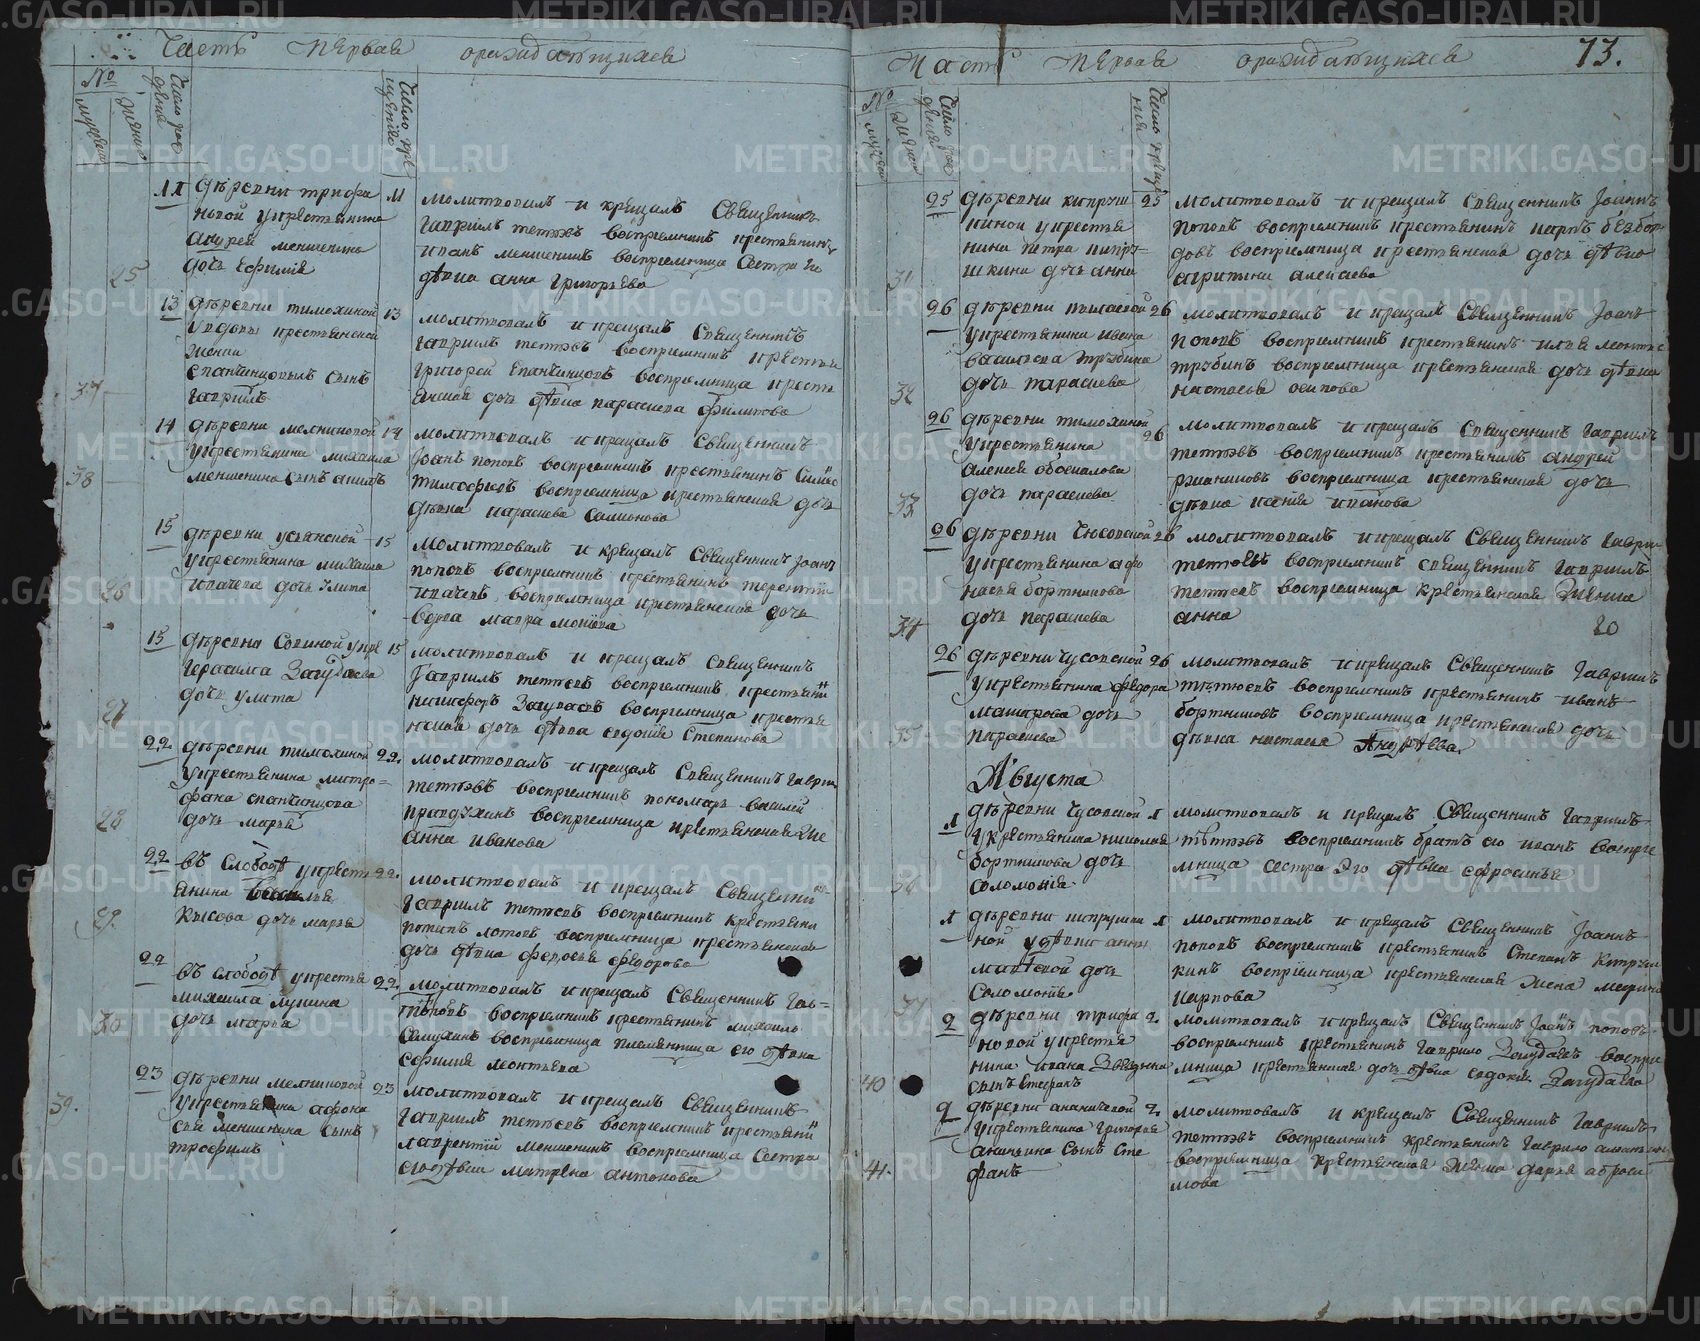 Часть первая ораждающихся
№
мужеска
женска
Число рождения
Число крещения
11 деревни трифа 11
новой укрестьянина
андрея меншенина
25 дочь Ефимия
молитвовалъ и крещалъ Священникъ
гаврилъ тетюевъ восприемникъ крестьянинъ
иванъ меншенинъ восприемница Сестра его
девка анна григорьева
13 деревни тимохиной 13
увдовы крестьянской
женки
37 епанчинцовыхъ сынъ
гаврилъ
молитвовалъ и крещалъ Священникъ
гаврилъ тетюевъ восприемникъ крестья
григорей Епанчинцовъ восприемница кресть
янская дочь девка параскева филипова
14 деревни мелниковой 14
укрестьянина михаила
38 меншенина сынъ акимъ
молитвовалъ и крещалъ Священникъ
Iоанъ поповъ восприемникъ крестьянинъ
тимофеевъ восприемница крестьянская дочь
девка параскева
15 деревни усьянской 15
укрестьянина михаила
26 ипачева дочь Улита
молитвовалъ и крещалъ Священникъ Iоанъ
поповъ восприемникъ крестьянинъ терентий
ипачевъ восприемница крестьянская дочь
вдова мавра
15 деревни Сопиной укре 15
герасима Загудаева
27 дочь улита
молитвовалъ и крещалъ Священникъ
гаврилъ тетюевъ восприемникъ крестьяни
никифоръ Загудаевъ восприемница крестья
нская дочь девка евдокия Степанова
22 деревни тимохиной 22.
укрестьянина митро=
фана епанчинцова
28 дочь марья
молитвовалъ и крещалъ Священникъ гаври
тетюевъ восприемникъ пономарь василей
восприемница крестьянская
анна иванова
22 въ слободе укресть 22.
янина василья
29. дочь марья
молитвовалъ и крещалъ Священникъ
гаврилъ тетюевъ восприемникъ крестьяни
потапъ лотовъ восприемница крестьянская
дочь девка федосья федорова
22 въ слободе укрестья 22.
михаила лукина
30 дочь марья
молитвовалъ и крещалъ Священникъ гав=
поповъ восприемникъ крестьянинъ михайло
восприемница племянница его девка
ефимия леонтьева
23 деревни мелниковой 23
39. укрестьянина афона
сья меншенина сынъ
трофимъ
молитвовалъ и крещалъ Священникъ
гаврилъ тетюевъ восприемникъ крестьяни
лаврентий меншенинъ восприемница Сестра
его девка матрена антонова
Часть первая ораждающихся 73.
№
мужеска
женска
Число рождения
Число крещения
25 деревни кипруш 25
киной укрестья
нина петра кипру=
31 шкина дочь анна
молитвовалъ и крещалъ Священникъ Iоаннъ
поповъ восприемникъ крестьянинъ карпъ безбор
довъ восприемница крестьянская дочь девка
агрипина алексеева
26 деревни 26
укрестьянина ивана
василева трубина
32 дочь параскева
молитвовалъ и крещалъ Священникъ Iоанъ
поповъ восприемникъ крестьянинъ илья леонтьев
трубинъ восприемница крестьянская дочь девка
настасья осипова
26 деревни тимохиной 26
укрестьянина
алексея
33 дочь параскева
молитвовалъ и крещалъ Священникъ гаврилъ
тетюевъ восприемникъ крестьянинъ андрей
ржаниковъ восприемница крестьянская дочь
девка ксения иванова
26 деревни Чюсовской 26
укрестьянина афо
насья бортникова
34 дочь параскева
молитвовалъ и крещалъ Священникъ Гаври
тетюевъ восприемникъ священникъ гаврилъ
тетюевъ восприемница крестьянская Женка
анна 20
26 деревни Чусовской 26
укрестьянина федора
макарова дочь
35 параскева
молитвовалъ и крещалъ Священникъ гаврилъ
тетюевъ восприемникъ крестьянинъ иванъ
бортниковъ восприемница крестьянская дочь
девка настасья Андреева.
Августа
1 деревни Чусовской 1
укрестьянина николая
бортникова дочь
соломония
молитвовалъ и крещалъ Священникъ гаврилъ
тетюевъ восприемникъ братъ его иванъ воспрiе
мница сестра Эго девка ефросинья
1 деревни кипрушки 1
ной удевки анны
дочь
37 Соломония
молитвовалъ и крещалъ Священникъ Iоаннъ
поповъ восприемникъ крестьянинъ Степанъ Кипруш
кинъ восприемница крестьянская Жена
карпова
2 деревни трифа 2.
новой укрестья
нина ивана
40 сынъ Стефанъ
молитвовалъ и крещалъ Священникъ Iоанъ поповъ
восприемникъ крестьянинъ гаврило Загудаевъ воспри
мница крестьянская дочь девка евдокия Загудаева
2 деревни ананьевой 2.
укрестьянина григорья
ананьина Сынъ Сте
41. фанъ
молитвовалъ и крещалъ Священникъ Гаврилъ
тетюевъ восприемникъ крестьянинъ Гаврило
восприемница крестьянская женка дарья аброси
мова